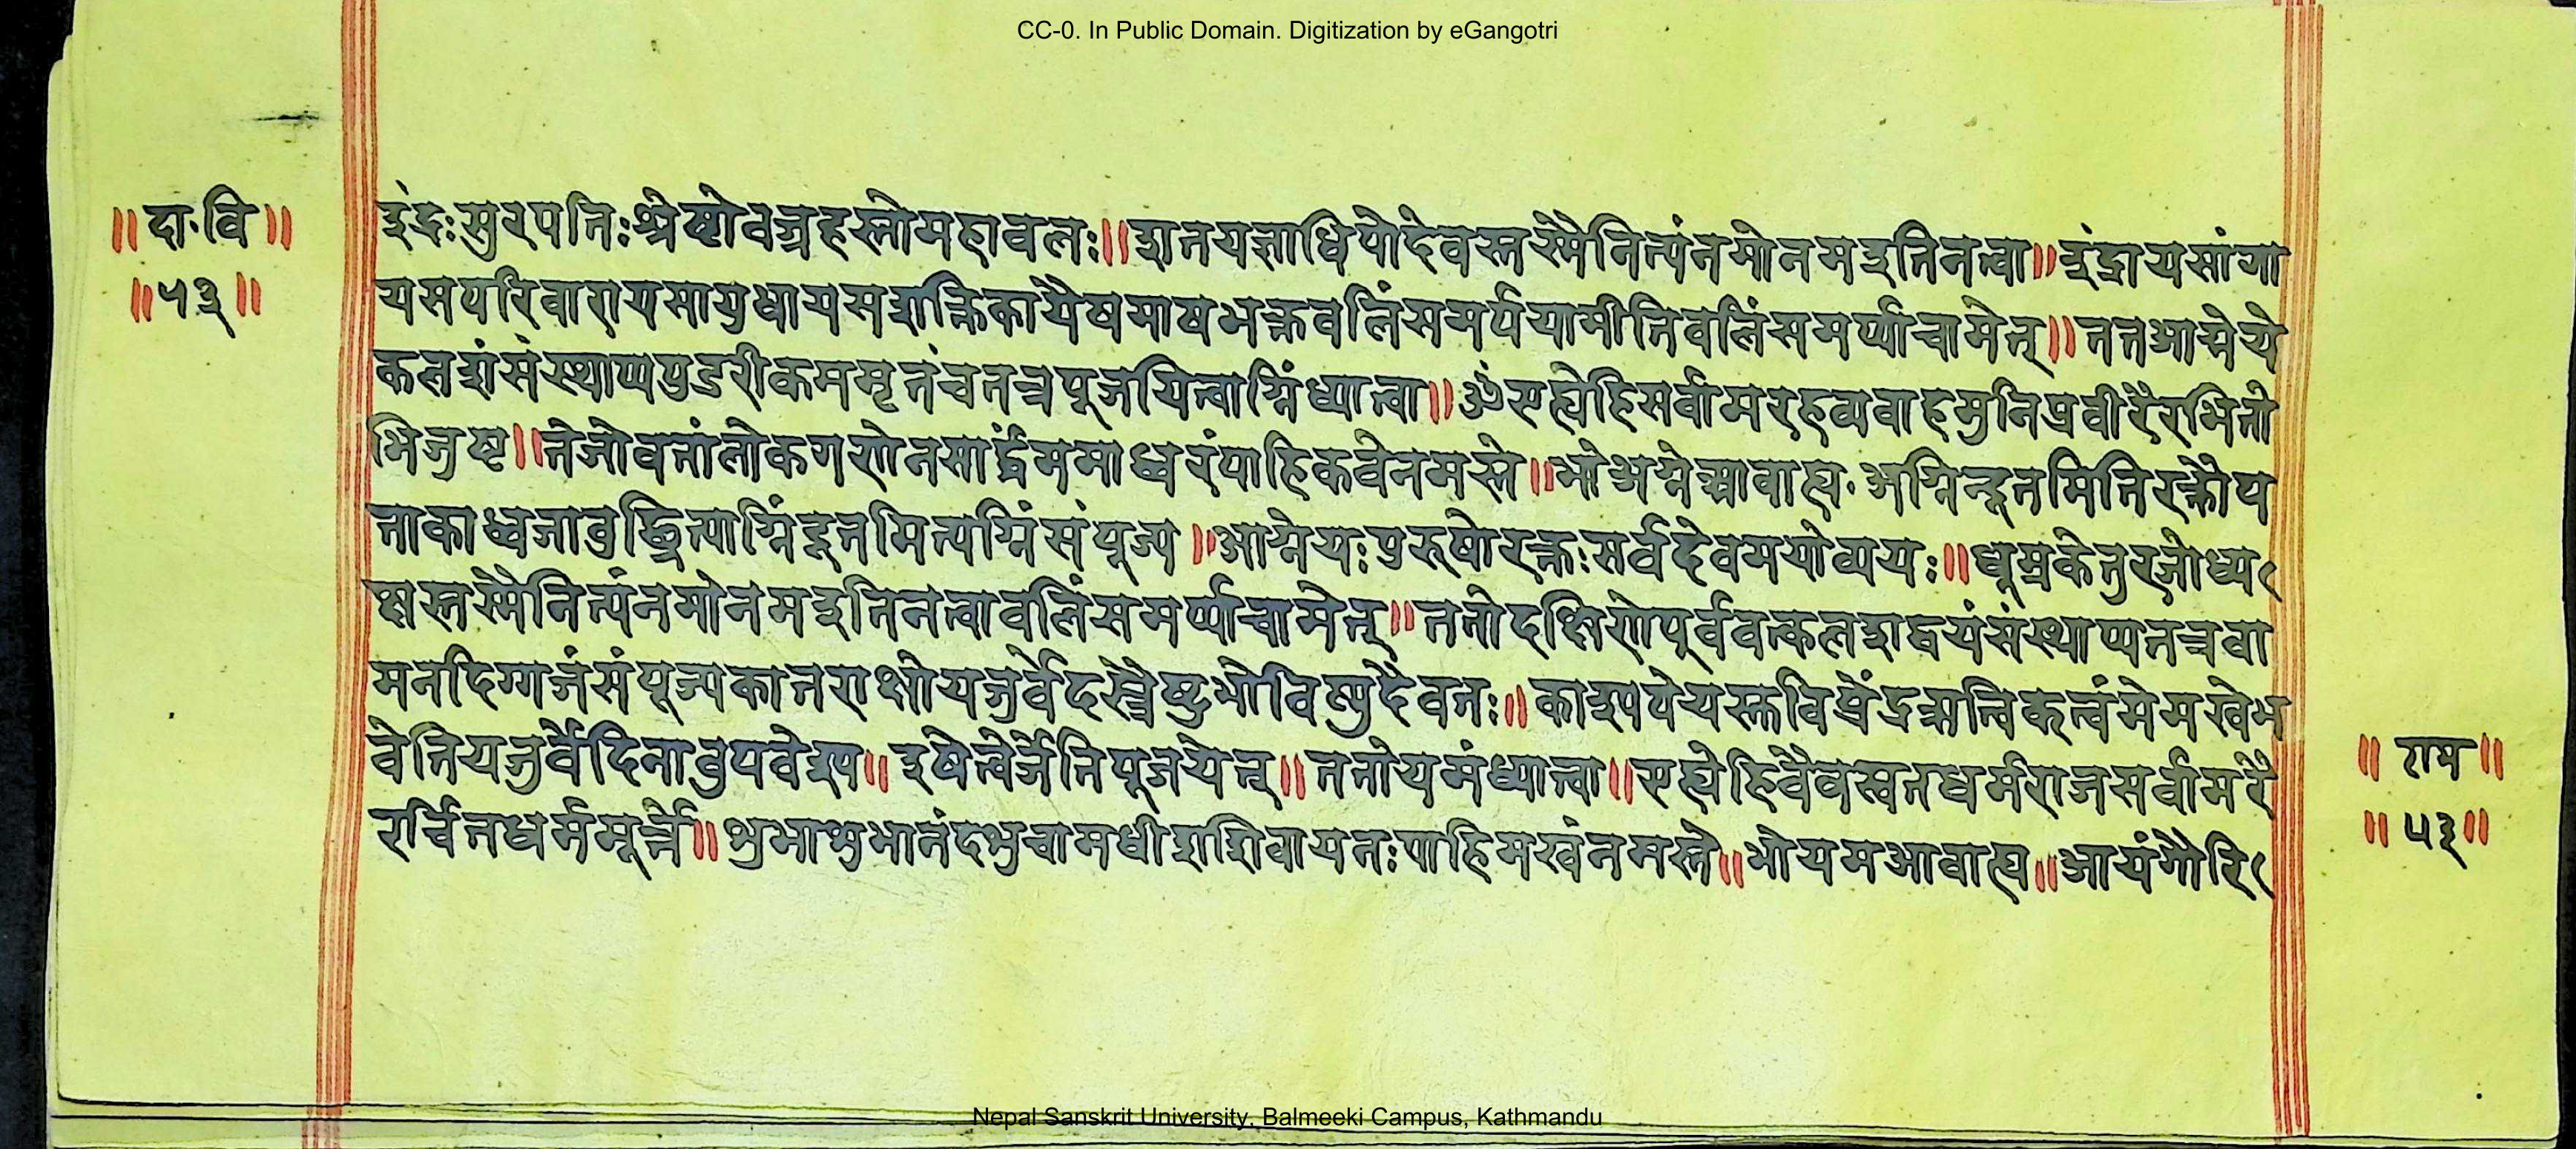 CC-0. In Public Domain. Digitization by eGangotri
॥ दा·वि ॥
॥ ५३ ॥
इंद्रः सुरपतिः श्रेष्टो वज्रहस्तो महावलः ॥ शतयज्ञाधिपो देवस्तस्मै नित्यं नमो नम इति नत्वा ॥ इंद्राय सांगा
य सपरिवाराय सायुधाय सशक्तिकायैष माषभक्तवलिं समर्पयामीति वलिं समर्प्याचामेत् ॥ तत आग्नेये
कलशं संस्थाप्य पुडरीकममृतं च तत्र पूजयित्वाग्निं ध्यात्वा ॥ ॐ एह्येहि सर्वामरहव्यवाह मुनिप्रवीरैरभितो
भिजुष्ट ॥ तेजोवतां लोकगणेन सार्द्धं ममाध्वरं पाहि कवे नमस्ते ॥ भो अग्ने आवाह्य· अग्निन्दूतमिति रक्तौ प
ताकाध्वजावुछ्रित्याग्निं दूतमित्यग्निं संपूज्य ॥ आग्नेयः पुरुषो रक्तः सर्वदेवमयो व्ययः ॥ धूम्रकेतुरजोध्य
क्षस्तस्मै नित्यं नमो नम इति नत्वा वलिं समर्प्याचामेत् ॥ ततो दक्षिणे पूर्ववत्कलशद्वयं संस्थाप्य तत्र वा
मनदिग्गजं संपूज्य कातराक्षो यजुर्वेदस्त्रैष्टुभो विष्णुदैवतः ॥ काश्यपेयस्तविप्रेंद्रऋत्विक्त्वं मे मखे भ
वेति यजुर्वेदिनावुपवेश्य ॥ इषेत्वेर्जेति पूजयेत् ॥ ततो यमं ध्यात्वा ॥ एह्येहि वैवस्वत धर्मराज सर्वामरै
रर्चित धर्ममूर्त्ते ॥ शुभाशुभानंदशुचामधीश शिवाय नः पाहि मखं नमस्ते ॥ भो यम आवाह्य ॥ आयंगौरि
॥ राम ॥
॥ ५३ ॥
Nepal Sanskrit University, Balmeeki Campus, Kathmandu